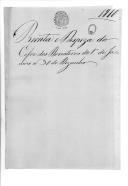 1811
Receita e Despeza do
Cofre dos Donativos do 1º de Ja-
neiro a 31 de Dezembro